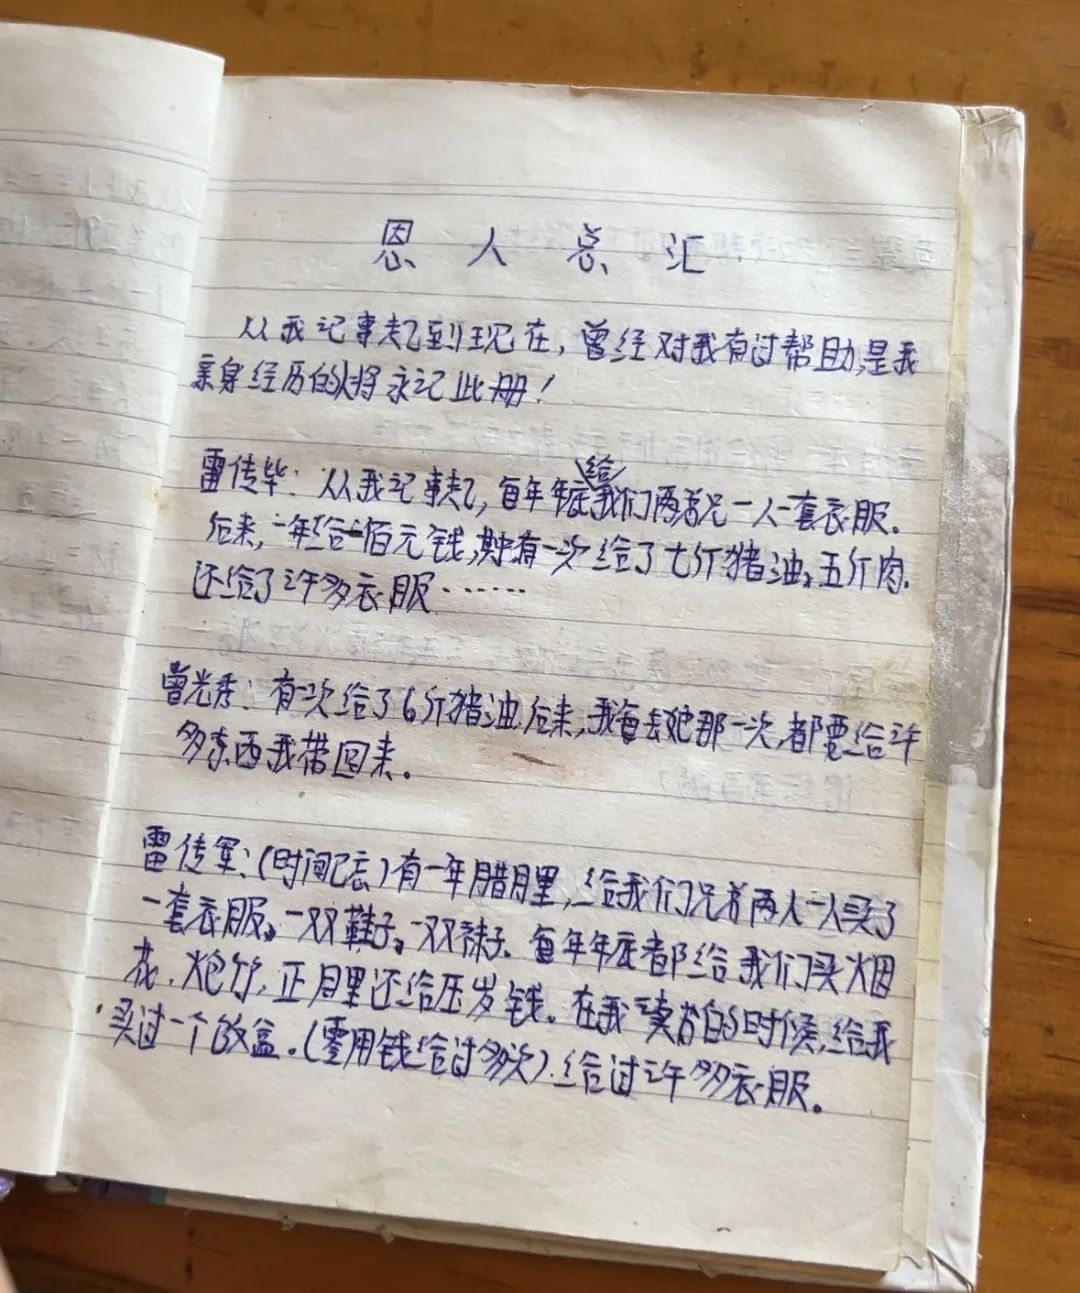 恩人总汇
从我记事起到现在,曾经对我有过帮助,是我
亲身经历的将永记此册!
雷传毕:从我记事起,每年年底给我们两弟兄一人一套衣服。
后来,一年给一佰元钱,其中有一次给了七斤猪油,五斤肉.
还给了许多衣服……
曾光秀:有一次给了6斤猪油.后来,我每去她那一次,都要给许
多东西我带回来。
雷传军:(时间已忘)有一年腊月里,给我们兄弟两人一人买了
一套衣服,一双鞋子,一双袜子。每年年底都给我们买烟
花,炮竹,正月里还给压岁钱。在我读书的时候,给我
买过一个饭盒。(零用钱给过多次).给过许多衣服。